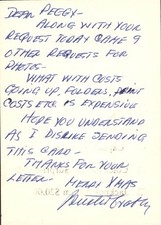 DEAR PEGGY—
ALONG WITH YOUR
REQUEST TODAY CAME 9
OTHER REQUESTS FOR
PHOTOS—
WHAT WITH COSTS
GOING UP, FOLDERS,
COSTS ETC IS EXPENSIVE
HOPE YOU UNDERSTAND
AS I DISLIKE SENDING
THIS CARD—
THANKS FOR YOUR
LETTER— MERRY XMAS